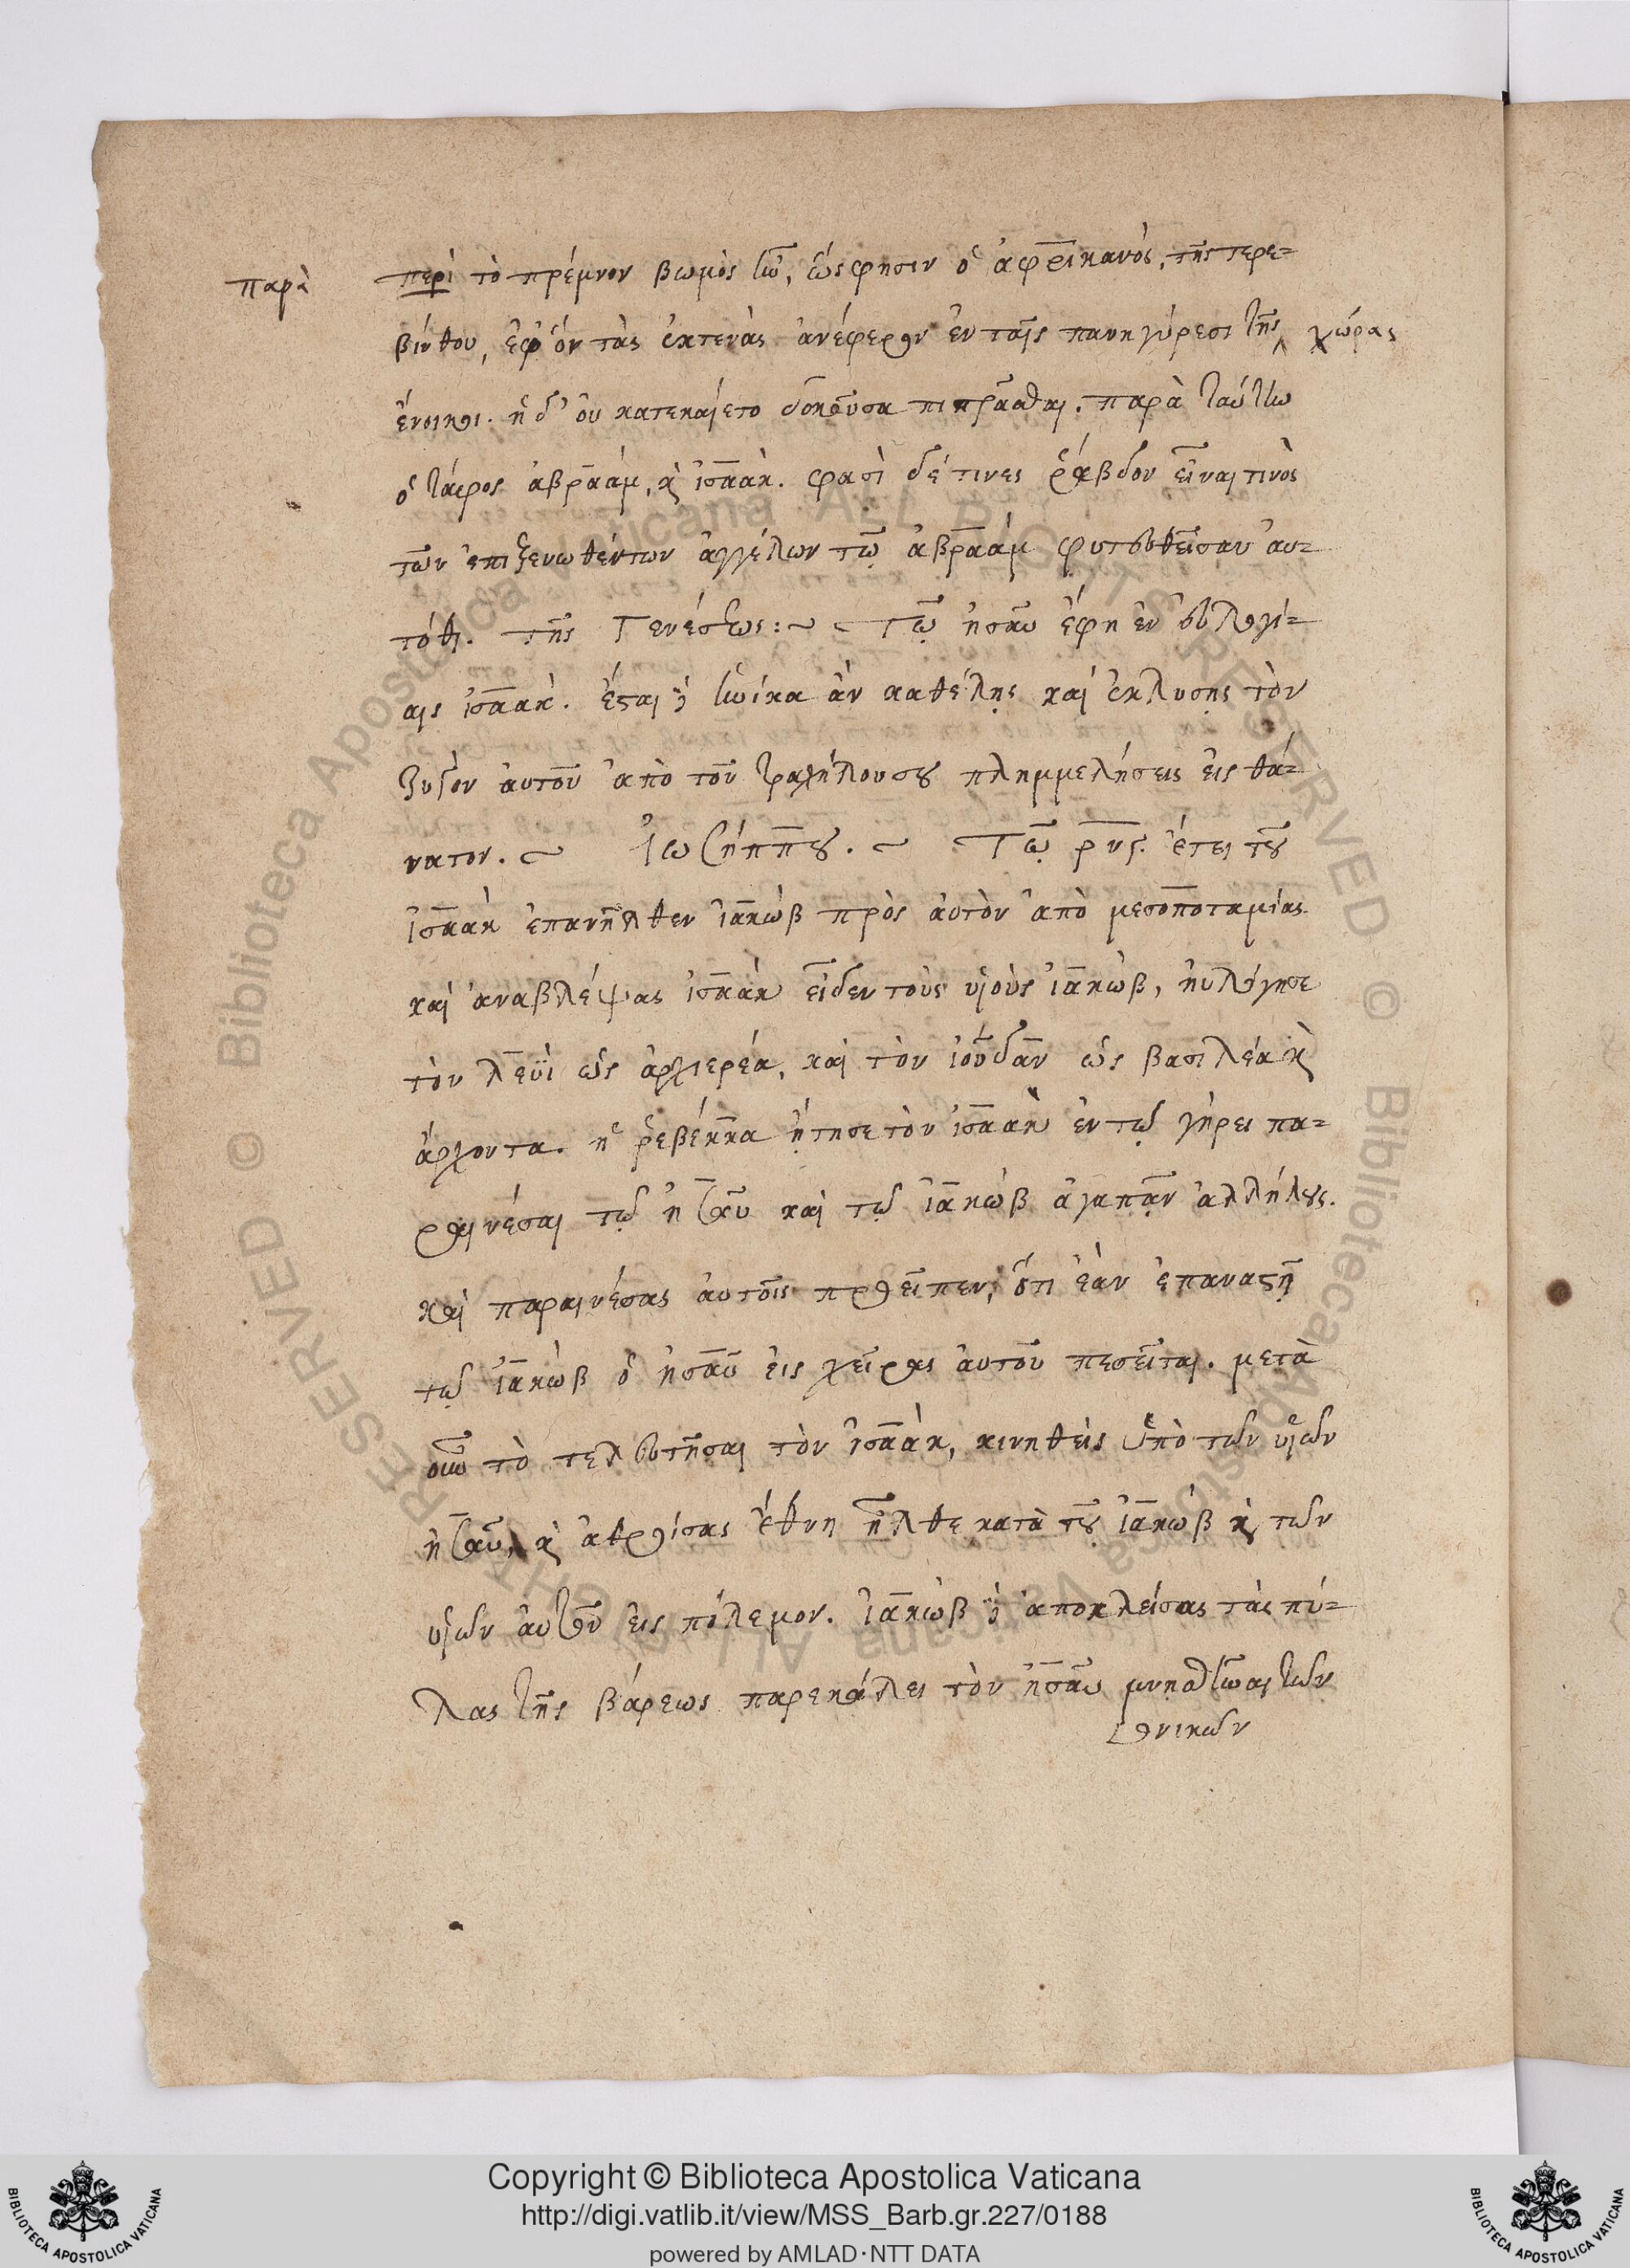 παρὰ
περὶ τὸ πρέμνον βωμὸς ἦν, ὥς φησιν ὁ ἀφρικανὸς, τῆς τερε=
βίνθου, ἐφ' ὃν τὰς ἐκτενὰς ἀνέφερον ἐν ταῖς πανηγύρεσι τῆς χώρας
ἔνοικοι. ἡ δ' οὐ κατεκαίετο δοκοῦσα πιπρᾶσθαι. παρὰ ταύτην
ὁ τάφος ἀβραάμ, κ̀ ἰσαάκ. φασὶ δέ τινες ῥάβδον εἶναι τινὸς
τῶν ἐπιξενωθέντων ἀγγέλων τῷ ἀβραάμ φυτευθεῖσαν αὐ=
τόθι. τῆς Γενέσεως:~ Τῷ ἠσαῦ ἔφη ἐν εὐλογί=
αις ἰσαάκ. ἔσται δὲ ἡνίκα ἂν καθέλῃς καὶ ἐκλύσῃς τὸν
ζυγὸν αὐτοῦ ἀπὸ τοῦ τραχήλου σου πλημμελήσεις εἰς θά=
νατον. ~ Ἰωσήππου. ~ Τῷ ρνς. ἔτει τοῦ
ἰσαὰκ ἐπανῆλθεν ἰακὼβ πρὸς αὐτὸν ἀπὸ μεσοποταμίας.
καὶ ἀναβλέψας ἰσαὰκ εἶδεν τοὺς υἱοὺς ἰακὼβ, ηὐλόγησε
τὸν λευῒ ὡς ἀρχιερέα, καὶ τὸν ἰούδαν ὡς βασιλέα κ̀
ἄρχοντα. ἡ ῥεβέκκα ᾔτησε τὸν ἰσαὰκ ἐν τῷ γήρει πα=
ραινέσαι τῷ ἠσαῦ καὶ τῷ ἰακὼβ ἀγαπᾷν ἀλλήλους.
καὶ παραινέσας αὐτοῖς προεῖπεν, ὅτι ἐὰν ἐπαναστῇ
τῷ ἰακὼβ ὁ ἠσαῦ εἰς χεῖρας αὐτοῦ πεσεῖται. μετὰ
οὖν τὸ τελευτῆσαι τὸν ἰσαὰκ, κινηθεὶς ὑπὸ τῶν υἱῶν
ἠσαῦ, κ̀ ἀθροίσας ἔθνη ἦλθε κατὰ τοῦ ἰακὼβ κ̀ τῶν
υἱῶν αὐτοῦ εἰς πόλεμον. ἰακὼβ δὲ ἀποκλείσας τὰς πύ=
λας τῆς βάρεως παρεκάλει τὸν ἠσαῦ μνησθῆναι τῶν
γονικῶν
Copyright © Biblioteca Apostolica Vaticana
http://digi.vatlib.it/view/MSS_Barb.gr.227/0188
powered by AMLAD·NTT DATA